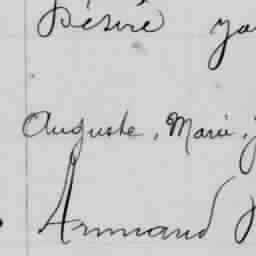 Désiré
Auguste, Marie,
Armand